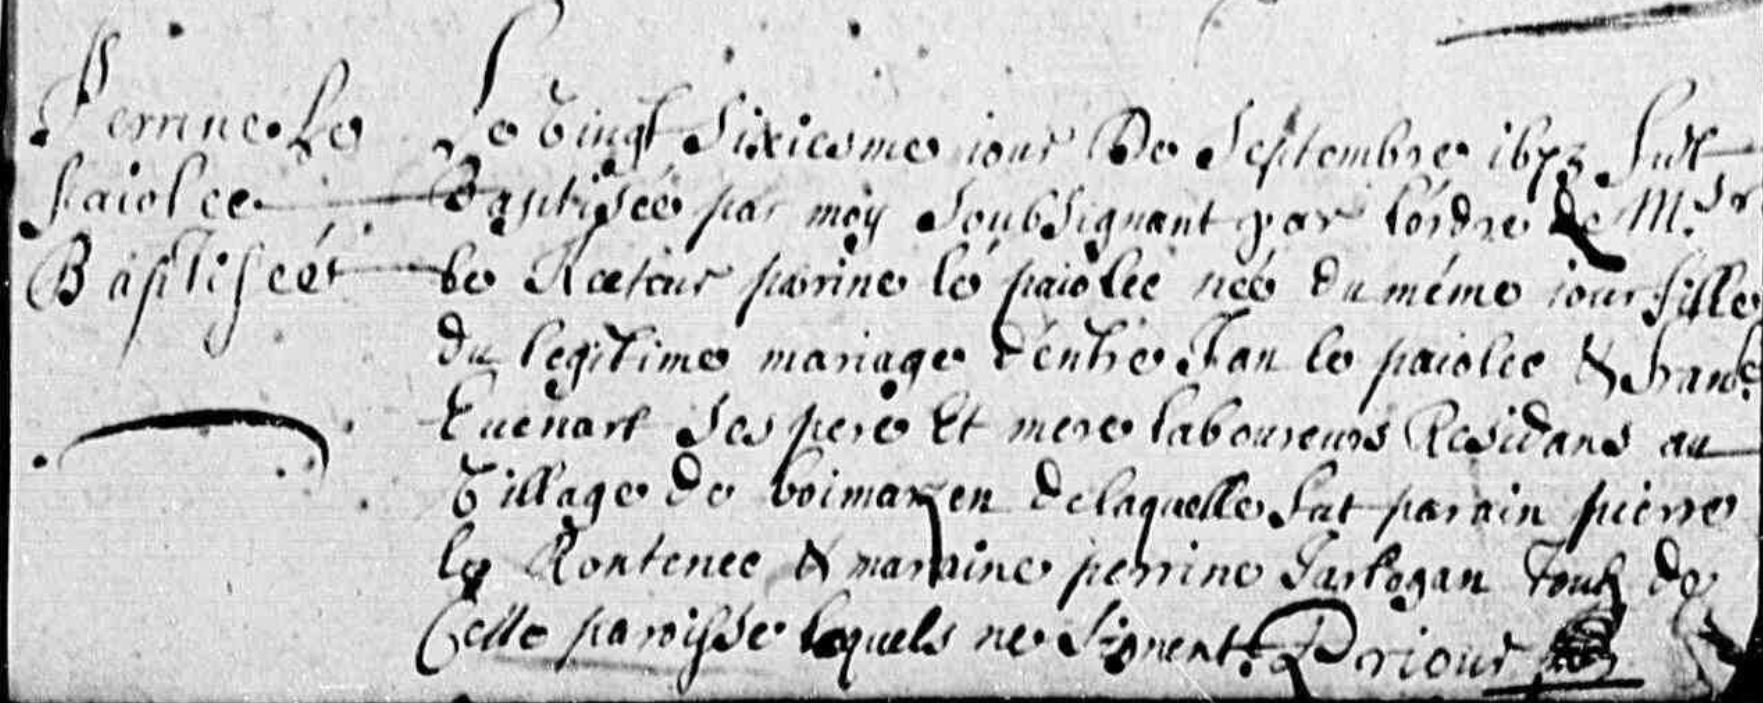 Perrine Le
paiolec
Baptiseé
Le Vingt Sixiesme iour De Septembre 167 fut
Baptiseé par moy Soubsignant par l'ordre de M.Sr
le Recteur perrine le paiolec neé du méme iour fille
du legitime mariage d'entre Jan le paiolec & franc.
Euenart Ses pere Et mere laboureurs Residans au
Village de delaquelle fut parain pierre
le & maraine perrine Tous de
Cette paroisse lequels ne Signent. Priour